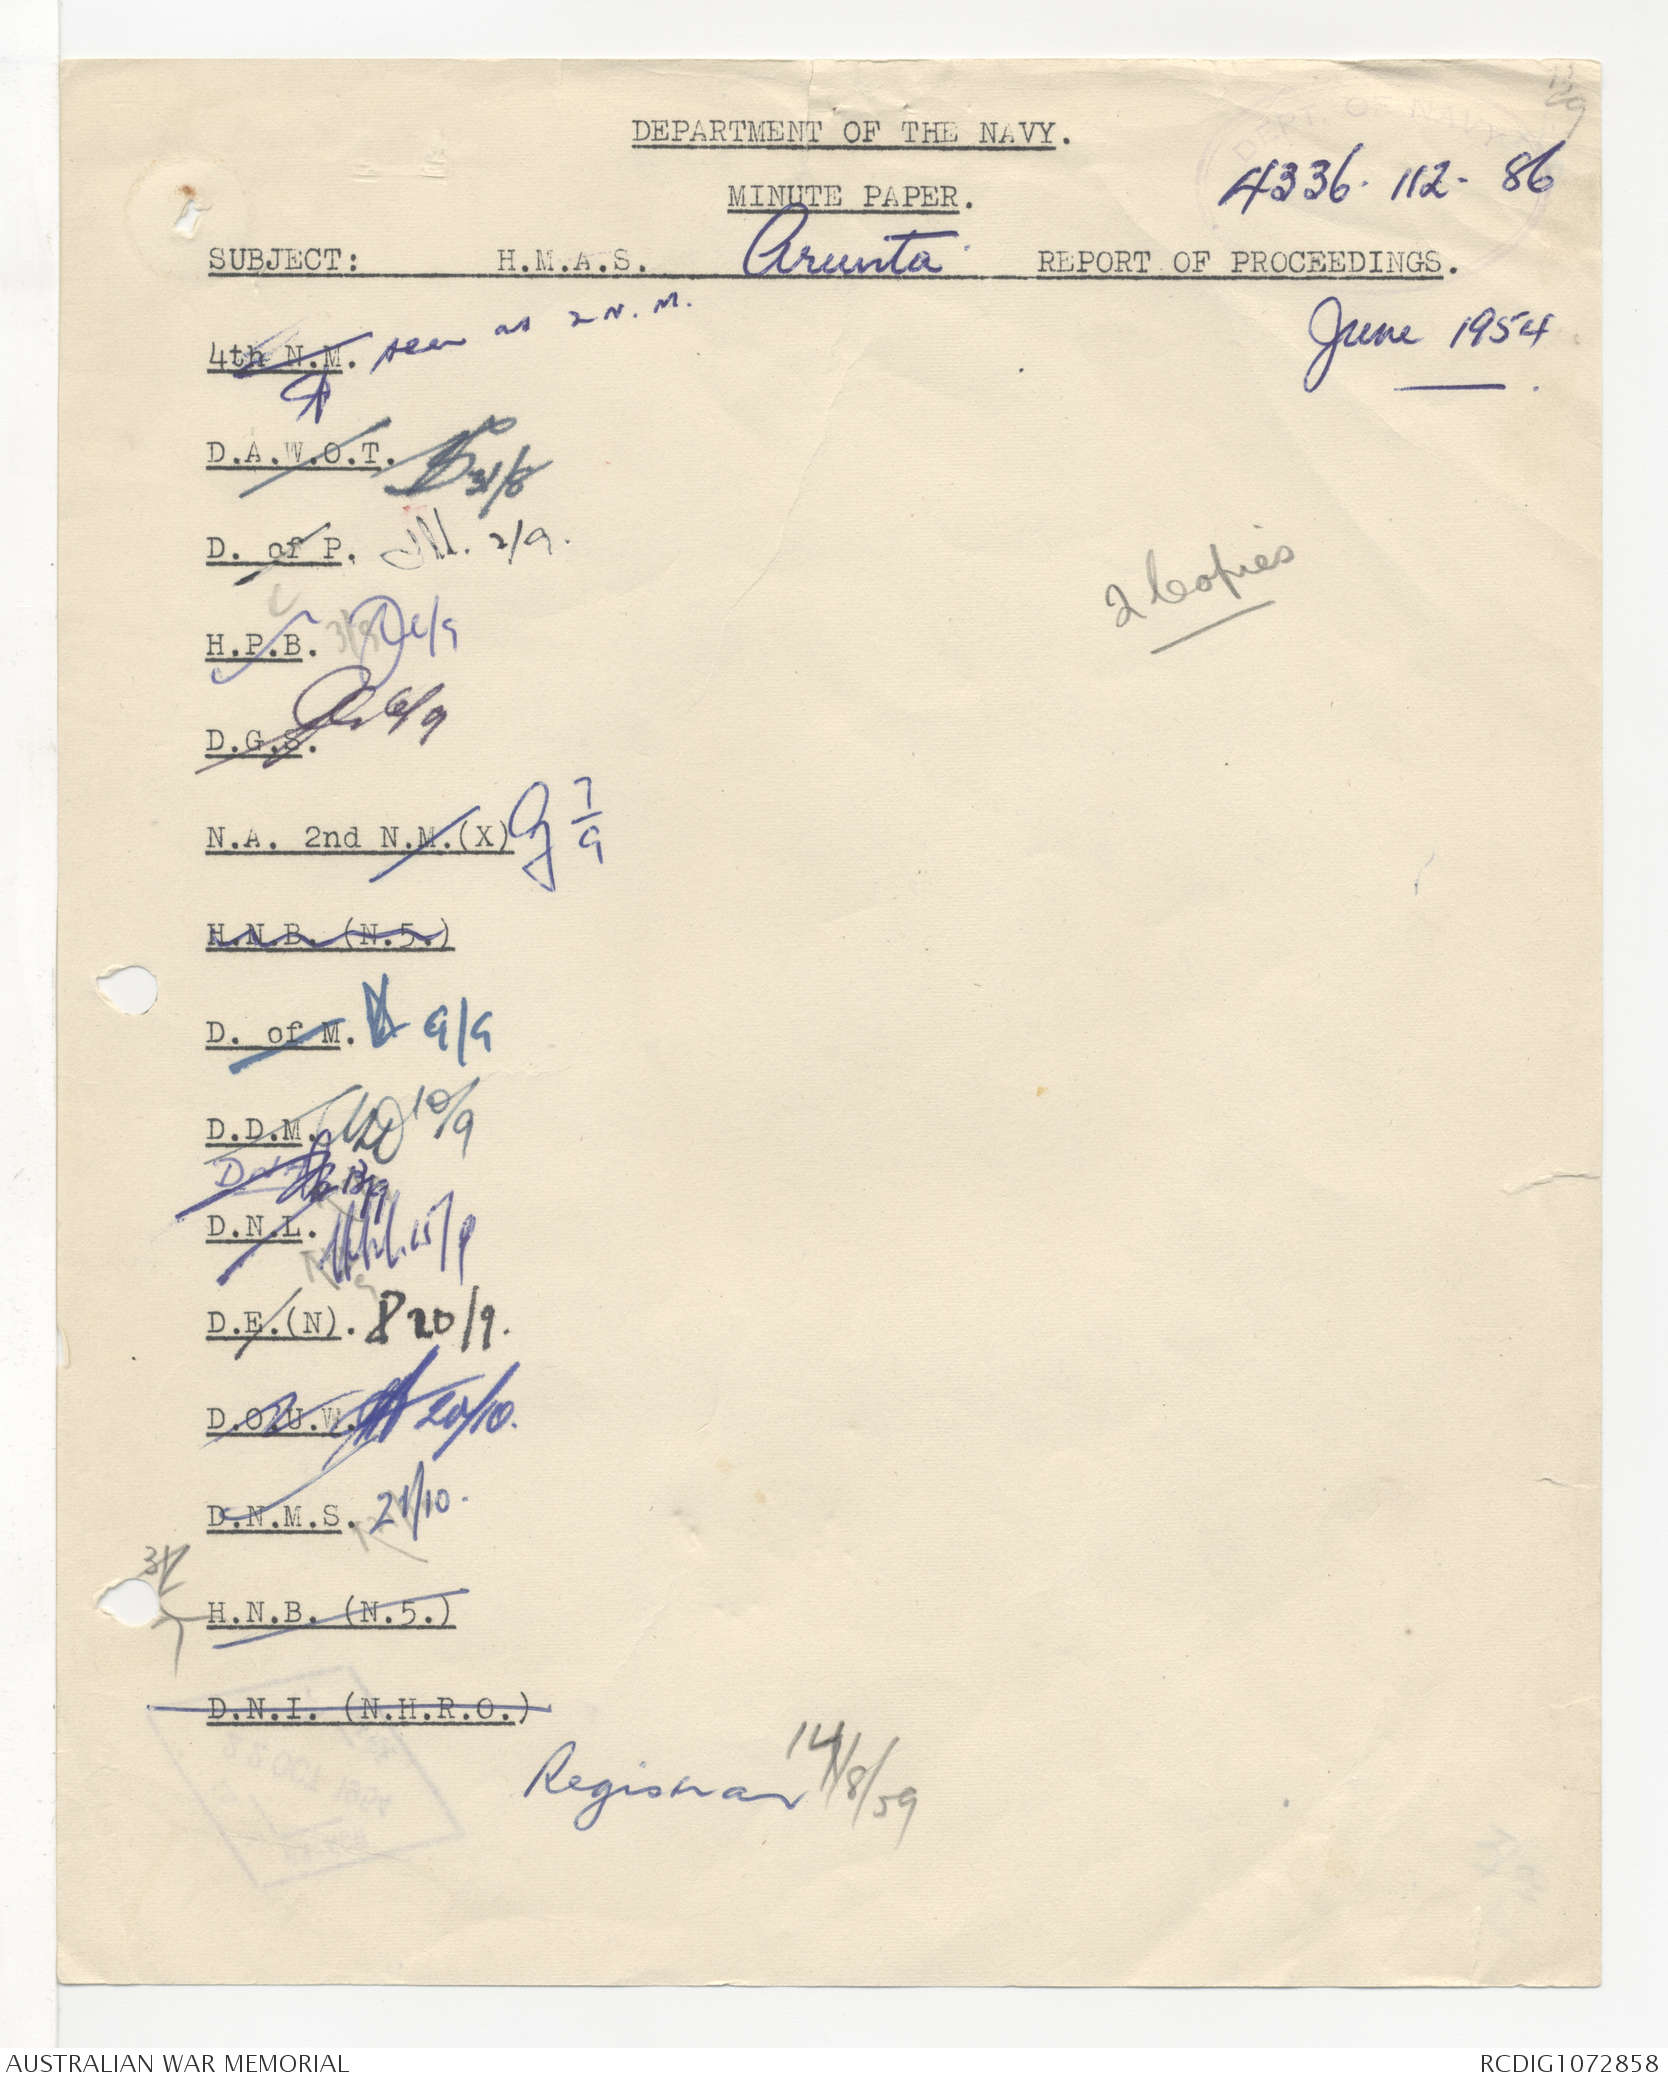 DEPARTMENT OF THE NAVY.
MINUTE PAPER.
4336. 112. 86
SUBJECT: H.M.A.S. Arunta REPORT OF PROCEEDINGS.
June 1954
4th N.M. seen as 2 N.M.
D.A.W.O.T. 31/8
D. of P. 2/9.
2 Copies
H.P.B. 6/9
D.G.S. 6/9
N.A. 2nd N.M.(X) 7/9
H.N.B. (N.5.)
D. of M. 9/9
D.D.M. 10/9
13/9
D.N.L. 15/9
D.E.(N). 20/9.
D.O.U.W. 20/10.
D.N.M.S. 21/10.
H.N.B. (N.5.)
D.N.I. (N.H.R.O.)
Registrar 14/8/59
AUSTRALIAN WAR MEMORIAL RCDIG1072858